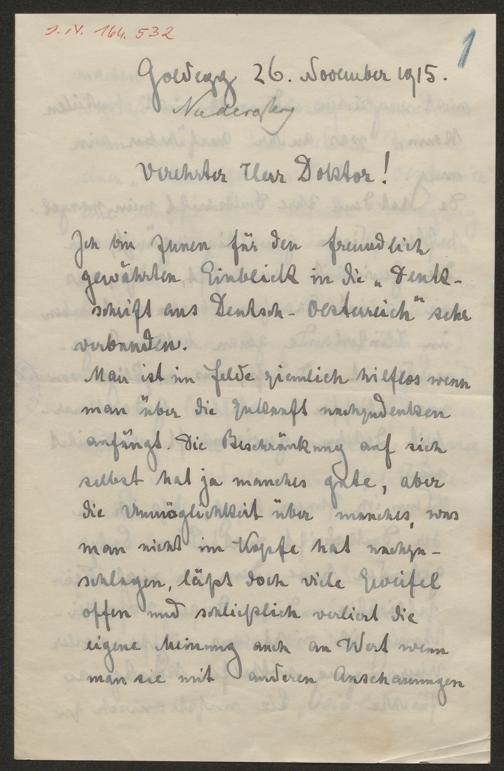 J.N. 164.532
1
Goldegg 26. November 1915.
Verehrter Herr Doktor!
Ich bin Ihnen für den freundlich
gewährten Einblick in die „Denk-
schrift aus Deutsch-Oesterreich" sehr
verbunden.
Man ist im Felde ziemlich hilflos wenn
man über die Zukunft nachzudenken
anfängt. Die Beschränkung auf sich
selbst hat ja manches gute, aber
die Unmöglichkeit über manches, was
man nicht im Kopfe hat nachzu-
schlagen, läßt doch viele Zweifel
offen und schließlich verliert die
eigene Meinung auch an Wert wenn
man sie mit anderen Anschauungen